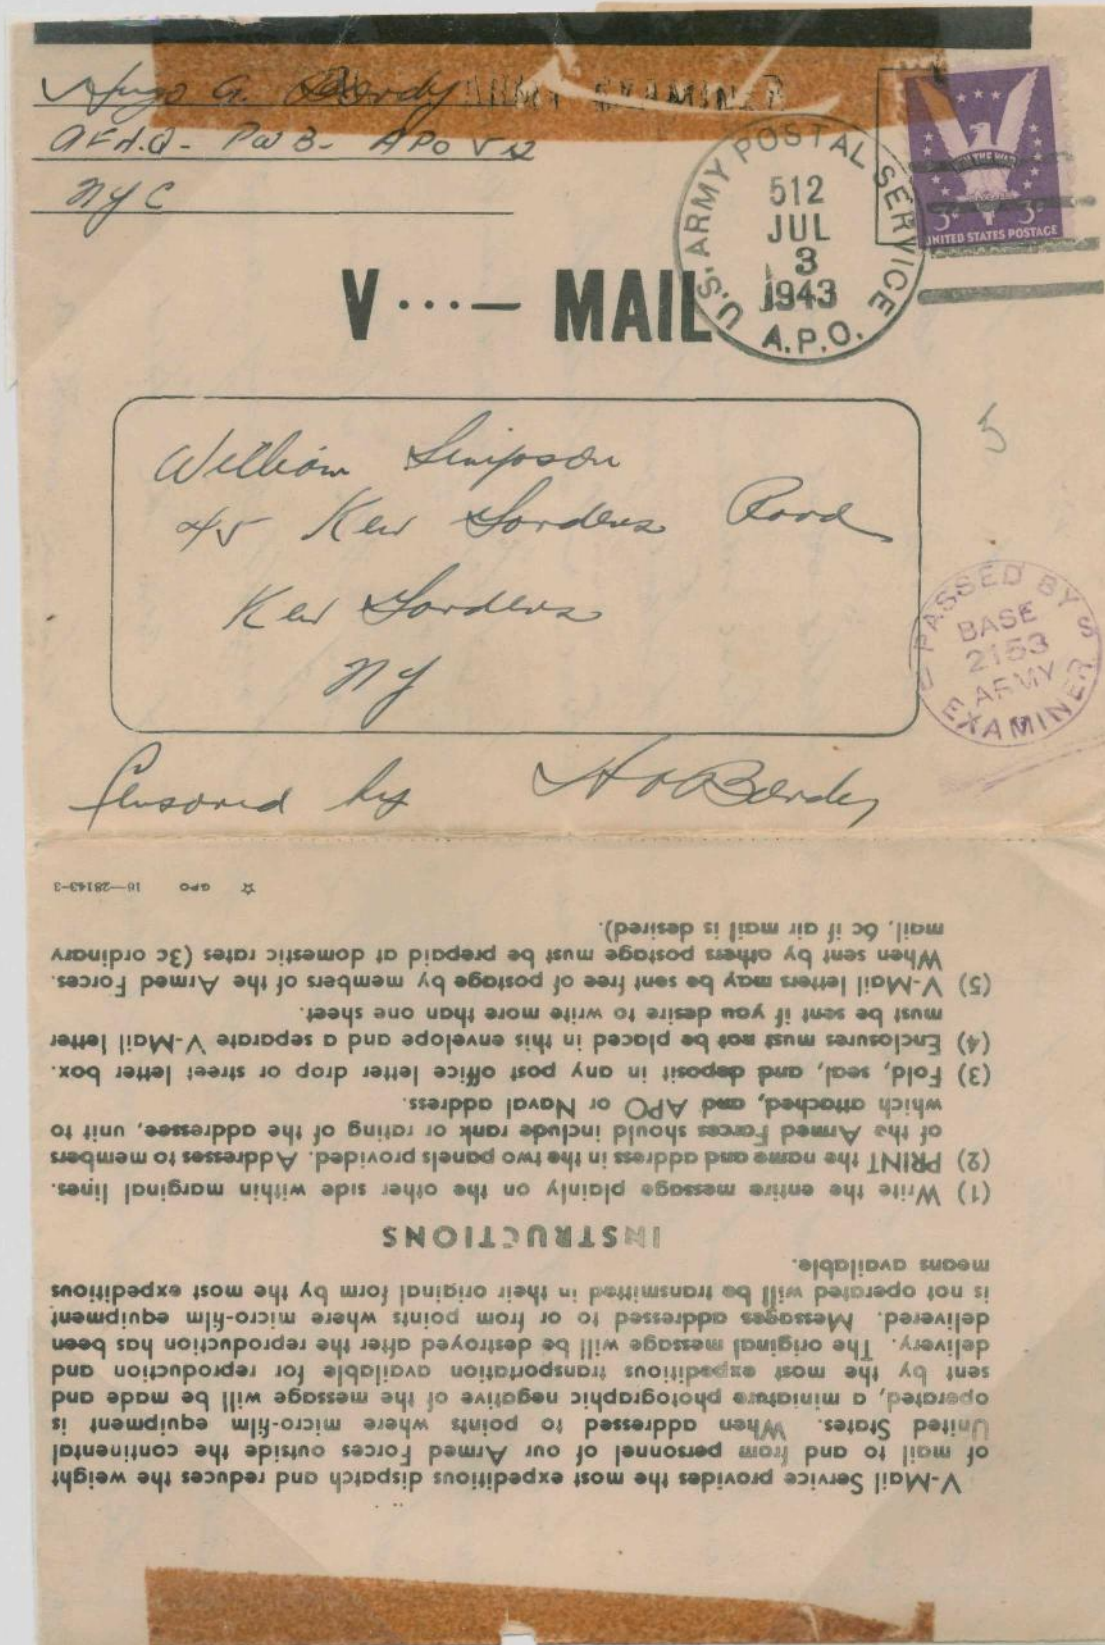 Hugo G. Bordy
ARMY EXAMINER
AFHQ - PWB - APO 512
NYC
U.S. ARMY POSTAL SERVICE
512
JUL
3
1943
A.P.O.
WIN THE WAR
3¢ 3¢
UNITED STATES POSTAGE
V ···— MAIL
William Simpson
45 Kew Gardens Road
Kew Gardens
NY
5
PASSED BY
BASE
2153
ARMY
EXAMINER
Censored by
V-Mail Service provides the most expeditious dispatch and reduces the weight
of mail to and from personnel of our Armed Forces outside the continental
United States. When addressed to points where micro-film equipment is
operated, a miniature photographic negative of the message will be made and
sent by the most expeditious transportation available for reproduction and
delivery. The original message will be destroyed after the reproduction has been
delivered. Messages addressed to or from points where micro-film equipment
is not operated will be transmitted in their original form by the most expeditious
means available.
INSTRUCTIONS
(1) Write the entire message plainly on the other side within marginal lines.
(2) PRINT the name and address in the two panels provided. Addresses to members
of the Armed Forces should include rank or rating of the addressee, unit to
which attached, and APO or Naval address.
(3) Fold, seal, and deposit in any post office letter drop or street letter box.
(4) Enclosures must not be placed in this envelope and a separate V-Mail letter
must be sent if you desire to write more than one sheet.
(5) V-Mail letters may be sent free of postage by members of the Armed Forces.
When sent by others postage must be prepaid at domestic rates (3c ordinary
mail, 6c if air mail is desired).
☆ GPO 16—28143-3